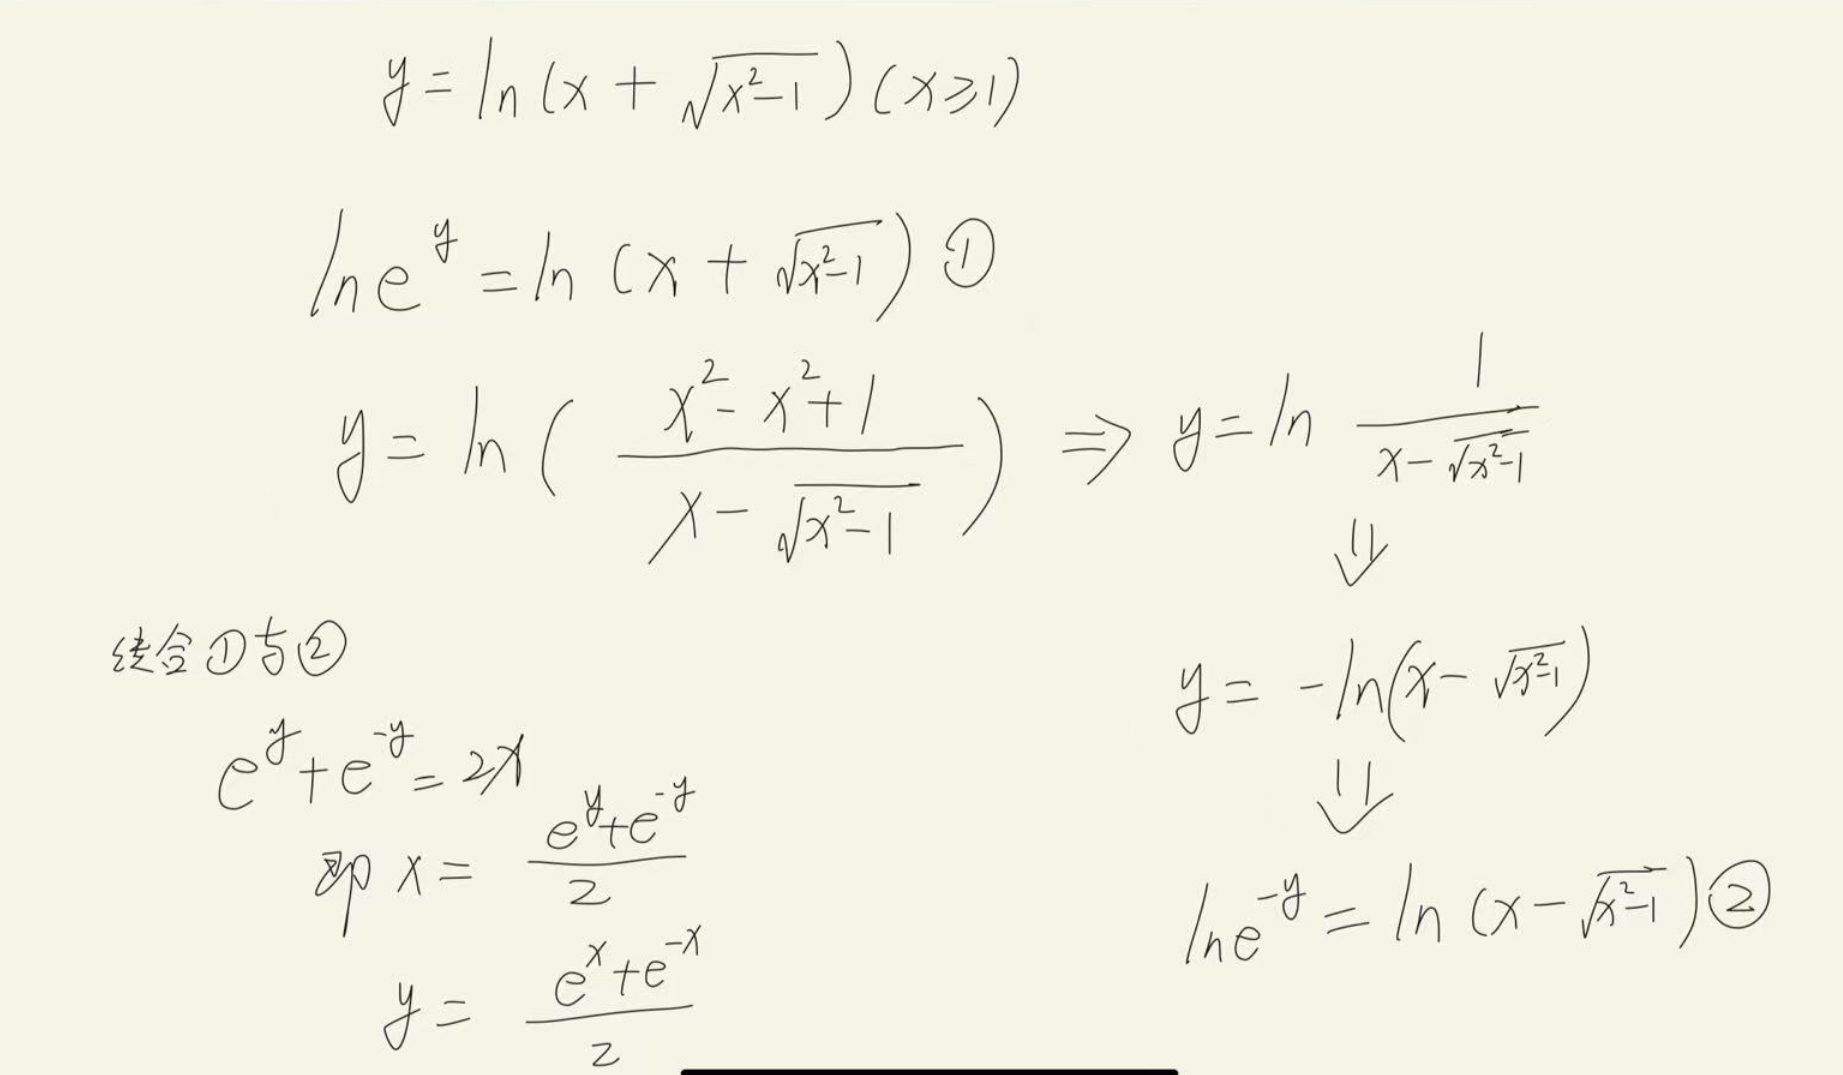 y = ln(x + √(x²-1)) (x≥1)
ln e^y = ln(x + √(x²-1)) ①
y = ln((x²-x²+1)/(x-√(x²-1))) ⇒ y = ln 1/(x-√(x²-1))
⇓
y = -ln(x-√(x²-1))
⇓
ln e^(-y) = ln(x-√(x²-1)) ②
结合①与②
e^y + e^(-y) = 2x
即 x = (e^y+e^(-y))/2
y = (e^x+e^(-x))/2